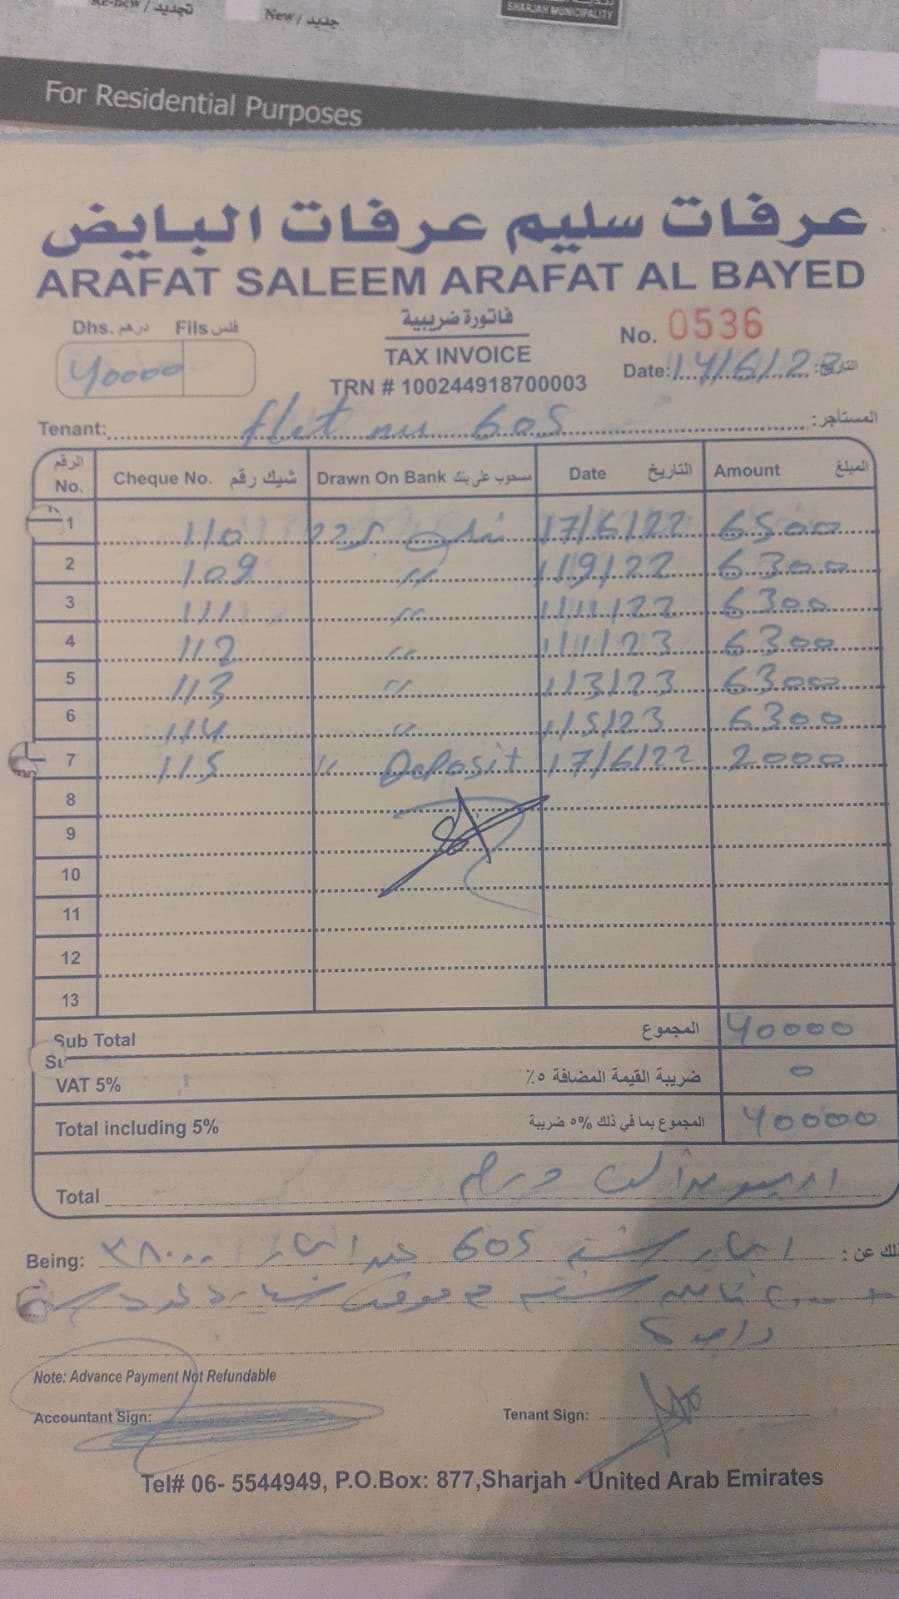 Re-new / تجديد
New / جديد
SHARJAH MUNICIPALITY
For Residential Purposes
عرفات سليم عرفات البايض
ARAFAT SALEEM ARAFAT AL BAYED
Dhs. درهم Fils فلس
40000
فاتورة ضريبية
TAX INVOICE
TRN # 100244918700003
No. 0536
Date: 14/6/22 التاريخ:
Tenant: flat nu 605 المستأجر:
الرقم No. Cheque No. شيك رقم Drawn On Bank مسحوب على بنك Date التاريخ Amount المبلغ
1 110 17/6/22 6500
2 109 // 1/9/22 6300
3 111 // 1/11/22 6300
4 112 // 1/1/23 6300
5 113 // 1/3/23 6300
6 114 // 1/5/23 6300
7 115 // Deposit 17/6/22 2000
8
9
10
11
12
13
Sub Total المجموع 40000
VAT 5% ضريبة القيمة المضافة ٥٪ 0
Total including 5% المجموع بما في ذلك 5% ضريبة 40000
Total اربعون ألف درهم
Being: ايجار شقة 605 ايجار ٣٨٠٠٠ ذلك عن :
واحدة
Note: Advance Payment Not Refundable
Accountant Sign: Tenant Sign:
Tel# 06- 5544949, P.O.Box: 877,Sharjah - United Arab Emirates